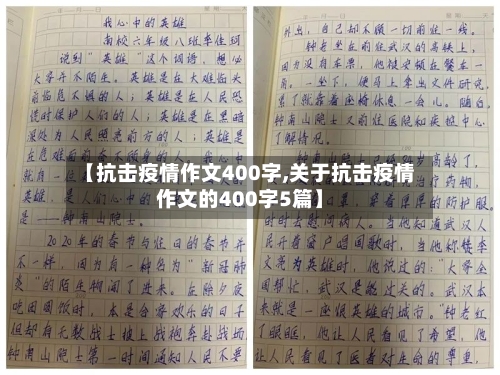 我心中的英雄
南校六年级八班李佳珂
说到“英雄”这个词语，想必
大家并不陌生。英雄是在大难临头
前临危不惧的人；英雄是在人民恐
慌时保护人们的人；英雄是在黑暗
深处为人民照亮前方的人；英雄是
在危难面前
就自
雄，是人们心中的
是——钟南山院士。
2020年的春节与往日的春节并
不一样，因为有一种名为“新冠肺
炎”的陌生物闯了进来。在除夕夜
吃团圆饭时，本是合家欢乐的日子
但却有无数战士披上战袍奔赴战场
钟南山院士第一时间通知人民不要
外出，自己却不顾一切前往一线。
钟老坐在前往武汉的高铁上，
因为没有车票，他被安顿在餐车一
角。一坐下，便马上拿出文件研究，
累了就靠着座椅休息一会儿。随后，
钟南山院士又前往医院和疾控中心
了解情况。
高龄了，
治疗药物，
穿着厚厚的防护服。
时时去慰问病人。当他知道武汉人
民开着窗户唱国歌时，当他称赞李
文亮为英雄时，他说过的：“大家全
国帮忙，武汉是能过关的。武汉本
来就是一座很英雄的城市。”钟老红
了眼眶，他让人民看见了希望，他
让人民看见了医者对生命的尊重，
【抗击疫情作文400字,关于抗击疫情
作文的400字5篇】